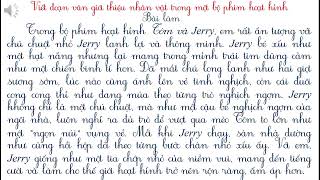 Viết đoạn văn giới thiệu nhân vật trong một bộ phim hoạt hình
Bài làm
Trong bộ phim hoạt hình Tom và Jerry, em rất ấn tượng với
chú chuột nhỏ Jerry lanh lợi và thông minh. Jerry bé xíu như
một hạt nắng nhưng lại mang trong mình trái tim dũng cảm
như một chiến binh tí hon. Đôi mắt chú long lanh như hai giọt
sương sớm, lúc nào cũng ánh lên vẻ tinh nghịch, còn cái đuôi
cong cong thì như đang vẽ nên những trò nghịch ngợm. Jerry
không chỉ là một chú chuột, mà như một cậu bé nghịch ngợm của
ngôi nhà, luôn nghĩ ra đủ trò để vượt qua mèo Tom to lớn như
một "ngọn núi" vụng về. Mỗi khi Jerry chạy, sàn nhà dường
như cũng hồi hộp dõi theo từng bước chân nhỏ xíu ấy. Với em,
Jerry giống như một tia chớp nhỏ của niềm vui, mang đến tiếng
cười và làm cho thế giới hoạt hình trở nên rộn ràng, ấm áp hơn.